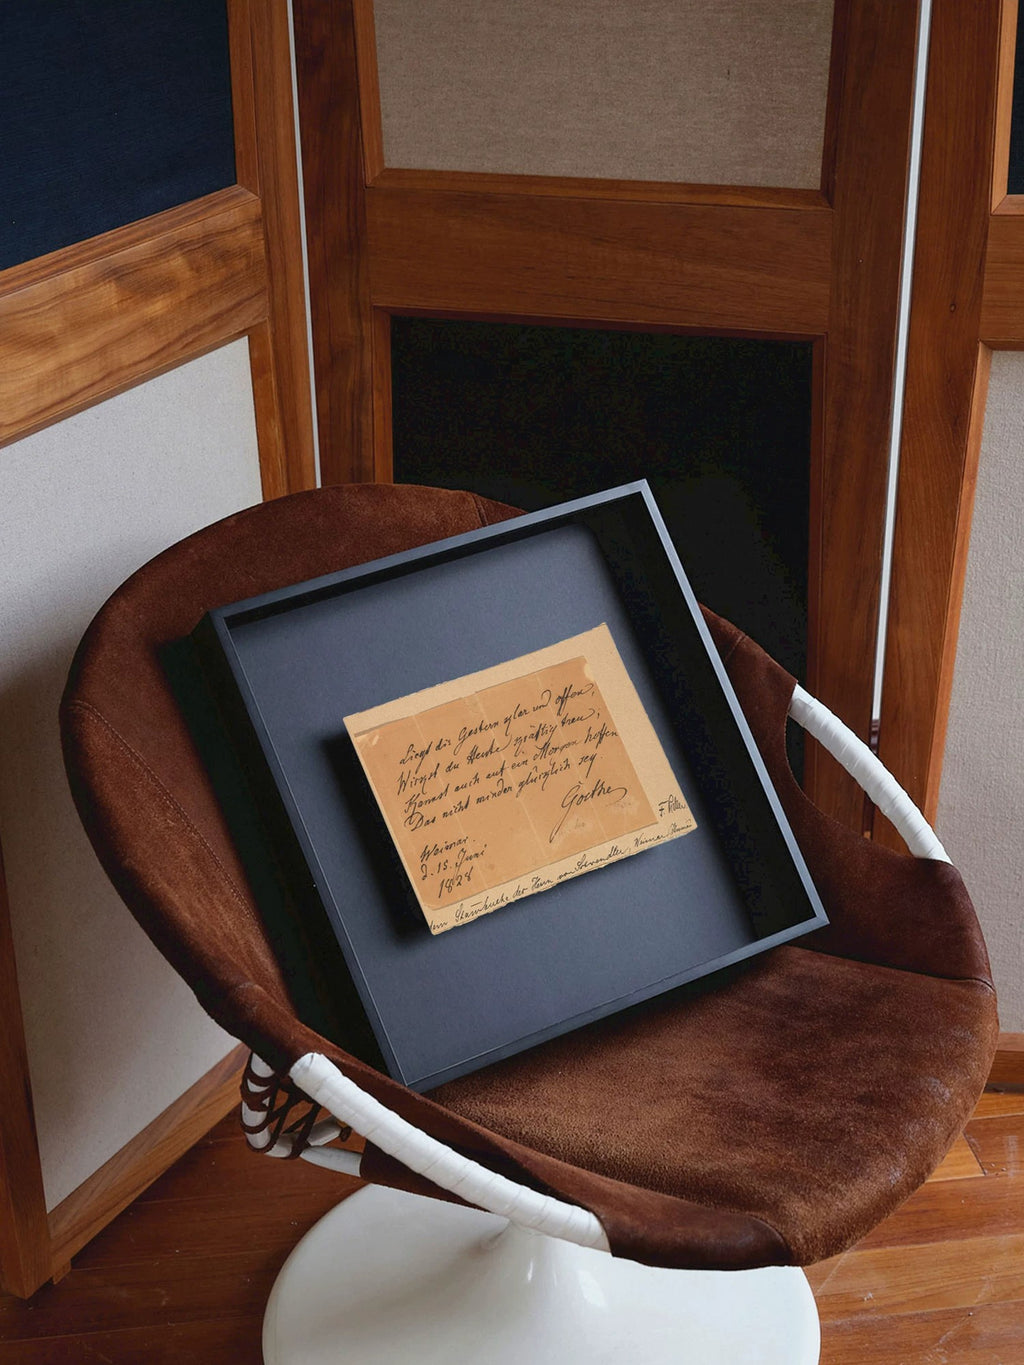 Liegt dir Gestern klar und offen,
Wirkst du Heute kräftig treu;
Kannst auch auf ein Morgen hoffen
Das nicht minder glücklich sey.
Goethe
Weimar.
d. 15. Juni
1828
dem Stammbuche des Herrn von Weimar
F.